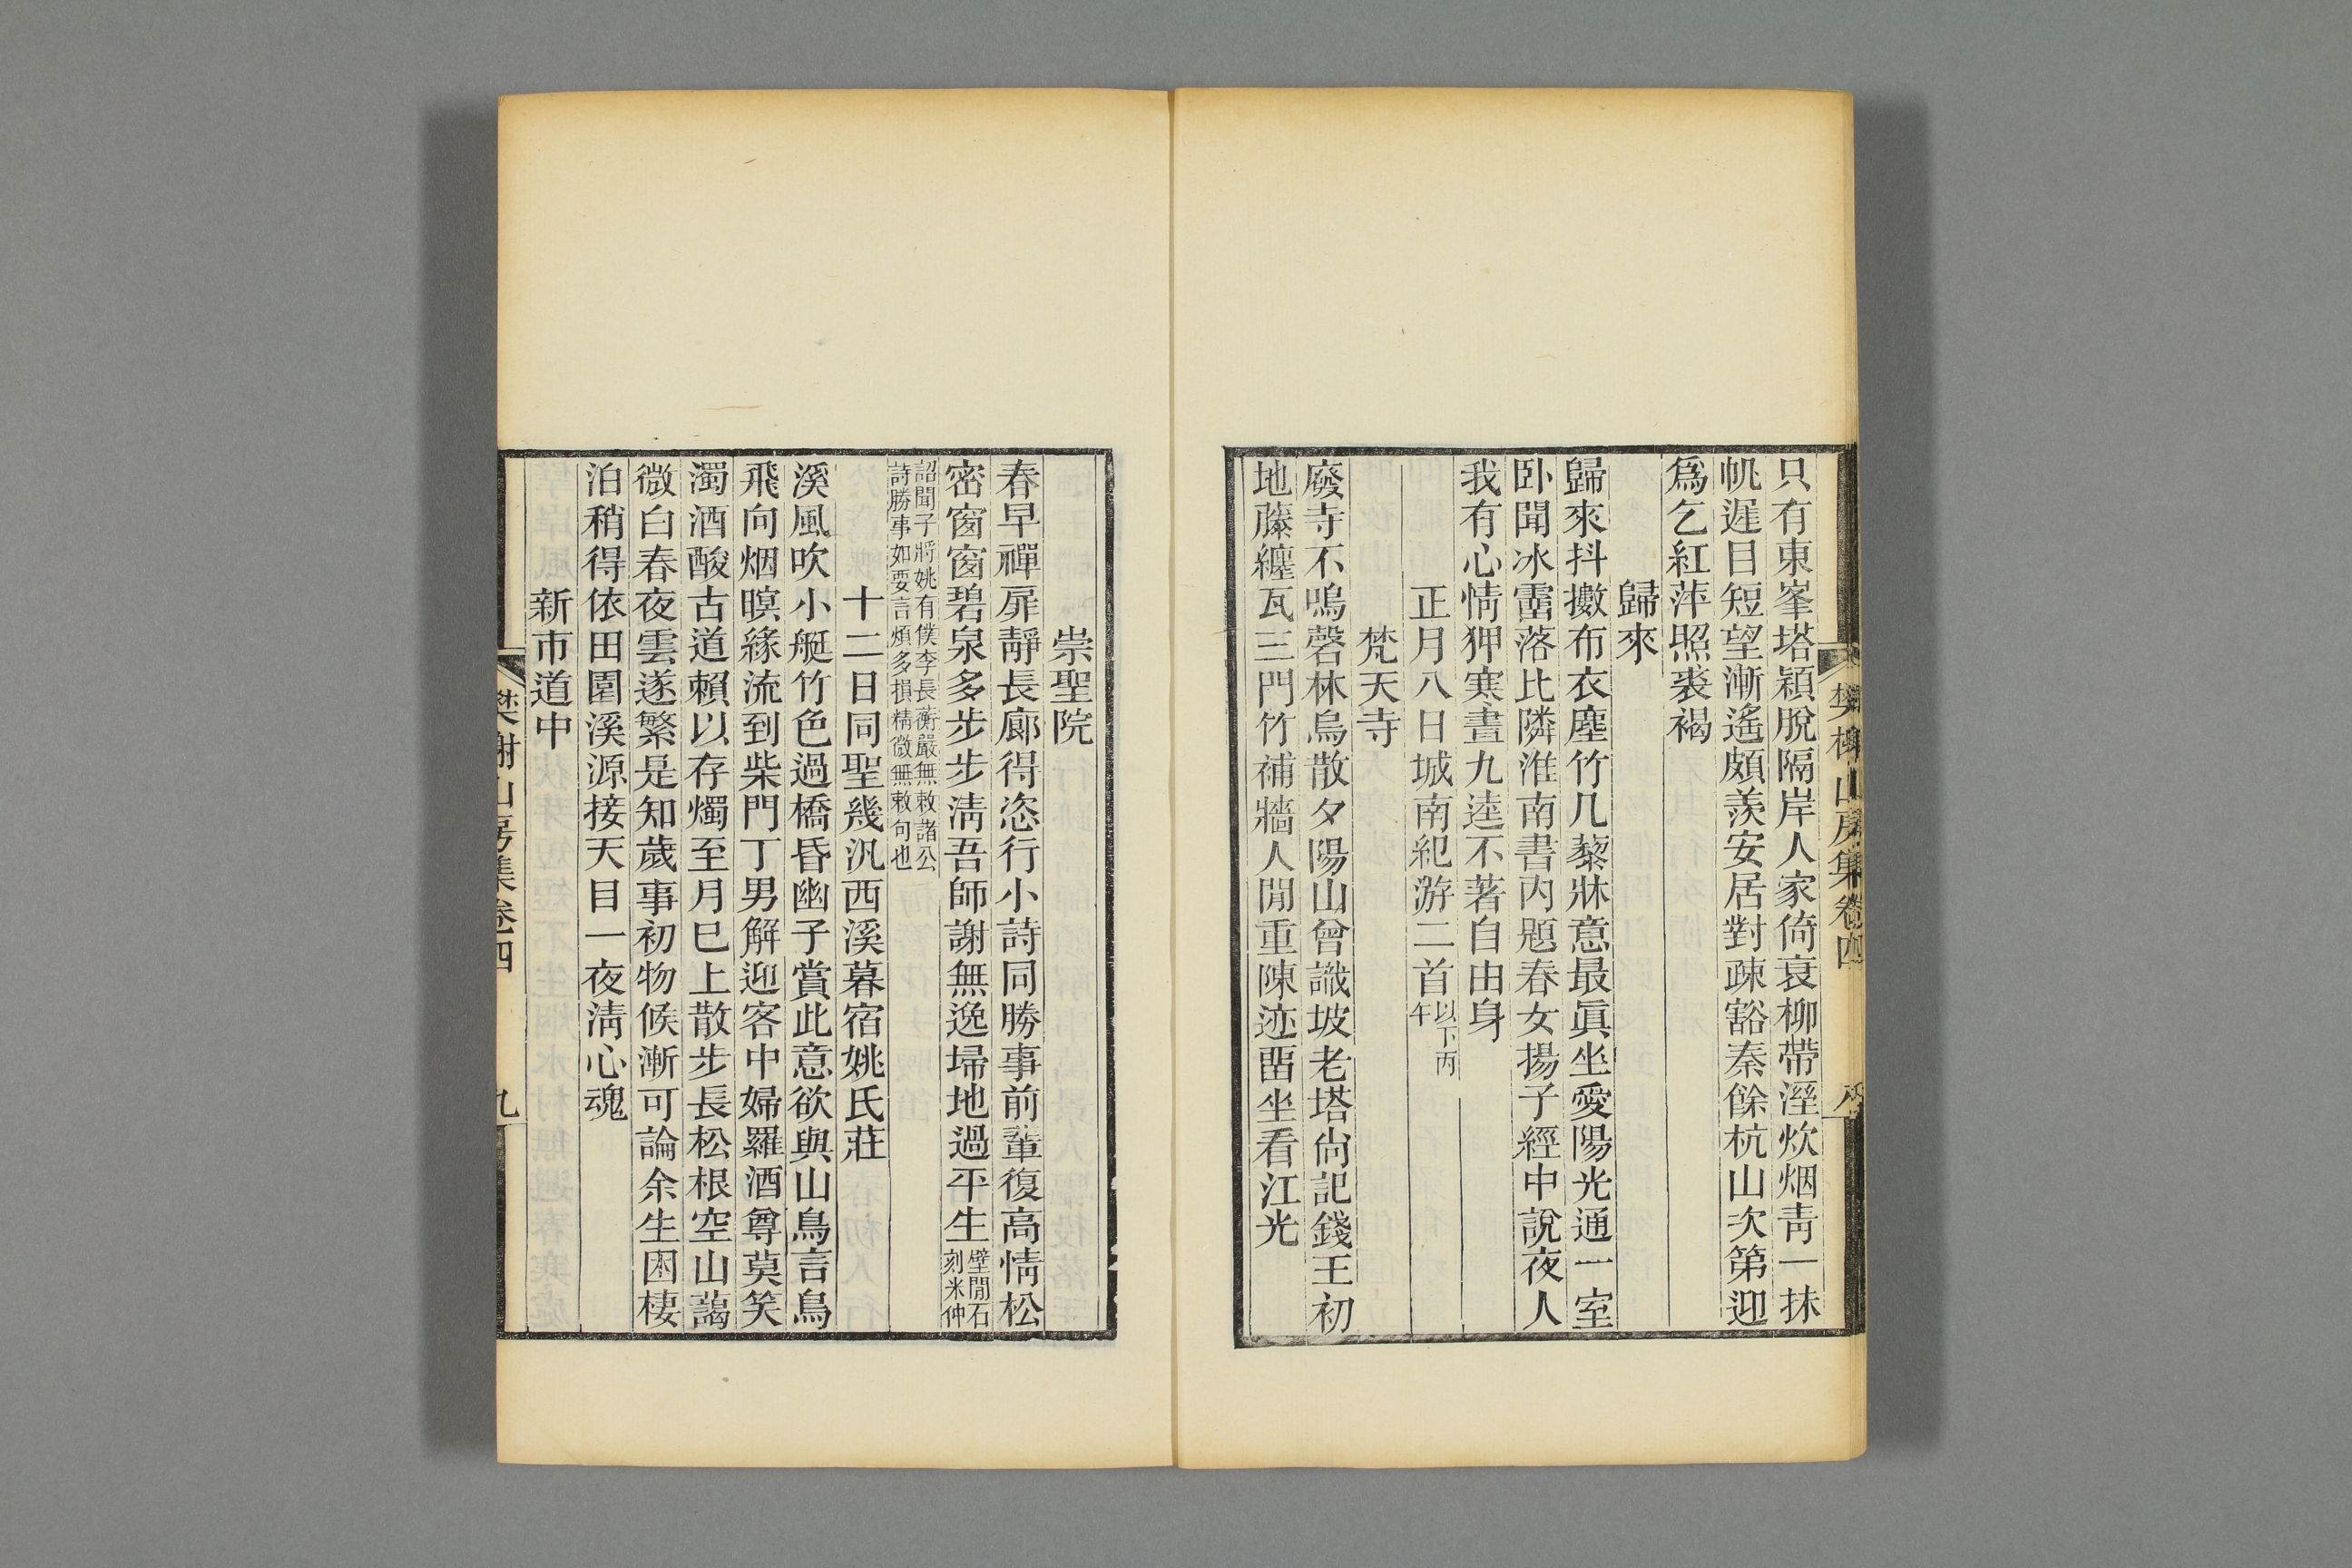 樊榭山房集卷四
八
只有東峯塔穎脫隔岸人家倚衰柳帶溼炊烟青一抹
帆遲目短望漸遙頗羨安居對疎豁秦餘杭山次第迎
爲乞紅萍照裘褐
歸來
歸來抖擻布衣塵竹几藜牀意最眞坐愛陽光通一室
卧聞冰霤落比隣淮南書內題春女揚子經中說夜人
我有心情狎寒晝九逵不著自由身
正月八日城南紀游二首以下丙午
梵天寺
廢寺不鳴磬林烏散夕陽山曾識坡老塔尙記錢王初
地藤纏瓦三門竹補牆人閒重陳迹畱坐看江光
崇聖院
春早禪扉靜長廊得恣行小詩同勝事前輩復高情松
密窗窗碧泉多步步淸吾師謝無逸埽地過平生壁閒石刻米仲
詔聞子將姚有僕李長蘅嚴無敕諸公
詩勝事如要言煩多損精微無敕句也
十二日同聖幾汎西溪暮宿姚氏莊
溪風吹小艇竹色過橋昏幽子賞此意欲與山鳥言鳥
飛向烟暝緣流到柴門丁男解迎客中婦羅酒尊莫笑
濁酒酸古道賴以存燭至月巳上散步長松根空山藹
微白春夜雲遂繁是知歲事初物候漸可論余生困棲
泊稍得依田園溪源接天目一夜淸心魂
新市道中
樊榭山房集卷四
九